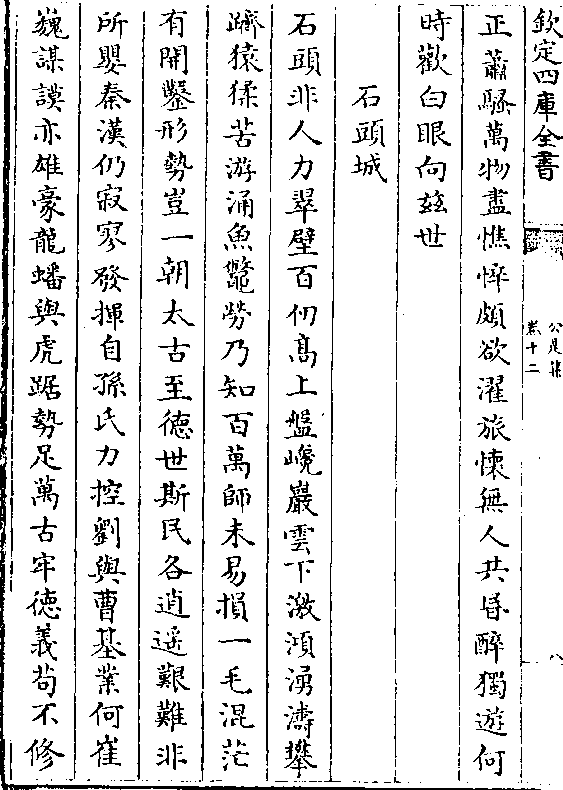 欽定四庫全書
公是集
卷十二
八
正蕭騷萬物盡憔悴頗欲濯旅懷無人共昏醉獨遊何
時歡白眼向兹世
石頭城
石頭非人力翠壁百仞髙上盤巉巖雲下激澒湧濤攀
躋猿猱苦游涌魚鼈勞乃知百萬師未易損一毛混茫
有開鑿形勢豈一朝太古至德世斯民各逍遥艱難非
所嬰秦漢仍寂寥發揮自孫氏力控劉與曹基業何崔
巍謀謨亦雄豪龍蟠與虎踞勢足萬古牢德義茍不修